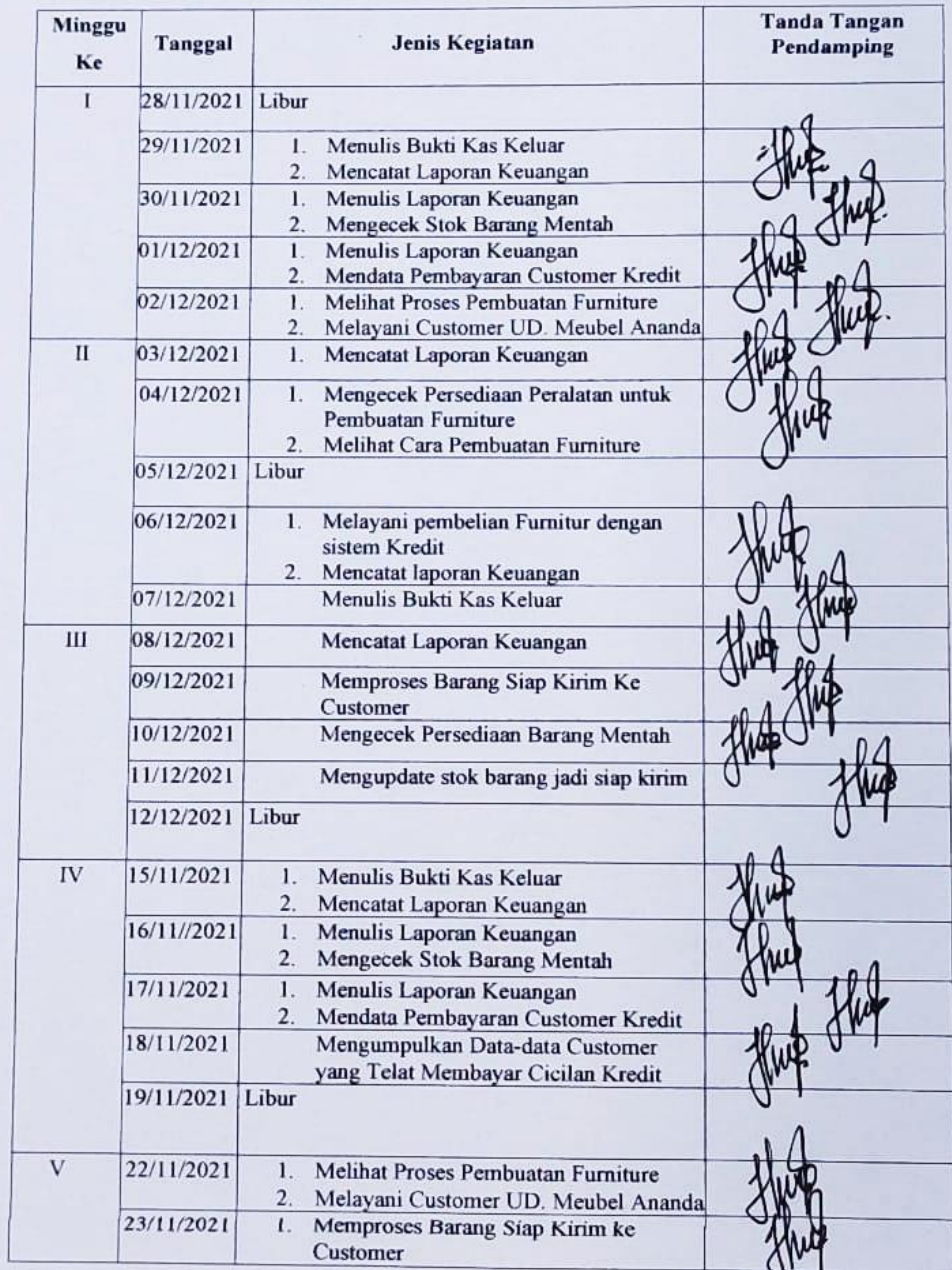 Minggu Ke | Tanggal | Jenis Kegiatan | Tanda Tangan Pendamping
I | 28/11/2021 | Libur
29/11/2021 | 1. Menulis Bukti Kas Keluar
2. Mencatat Laporan Keuangan
30/11/2021 | 1. Menulis Laporan Keuangan
2. Mengecek Stok Barang Mentah
01/12/2021 | 1. Menulis Laporan Keuangan
2. Mendata Pembayaran Customer Kredit
02/12/2021 | 1. Melihat Proses Pembuatan Furniture
2. Melayani Customer UD. Meubel Ananda
II | 03/12/2021 | 1. Mencatat Laporan Keuangan
04/12/2021 | 1. Mengecek Persediaan Peralatan untuk
Pembuatan Furniture
2. Melihat Cara Pembuatan Furniture
05/12/2021 | Libur
06/12/2021 | 1. Melayani pembelian Furnitur dengan
sistem Kredit
2. Mencatat laporan Keuangan
07/12/2021 | Menulis Bukti Kas Keluar
III | 08/12/2021 | Mencatat Laporan Keuangan
09/12/2021 | Memproses Barang Siap Kirim Ke
Customer
10/12/2021 | Mengecek Persediaan Barang Mentah
11/12/2021 | Mengupdate stok barang jadi siap kirim
12/12/2021 | Libur
IV | 15/11/2021 | 1. Menulis Bukti Kas Keluar
2. Mencatat Laporan Keuangan
16/11//2021 | 1. Menulis Laporan Keuangan
2. Mengecek Stok Barang Mentah
17/11/2021 | 1. Menulis Laporan Keuangan
2. Mendata Pembayaran Customer Kredit
18/11/2021 | Mengumpulkan Data-data Customer
yang Telat Membayar Cicilan Kredit
19/11/2021 | Libur
V | 22/11/2021 | 1. Melihat Proses Pembuatan Furniture
2. Melayani Customer UD. Meubel Ananda
23/11/2021 | 1. Memproses Barang Siap Kirim ke
Customer